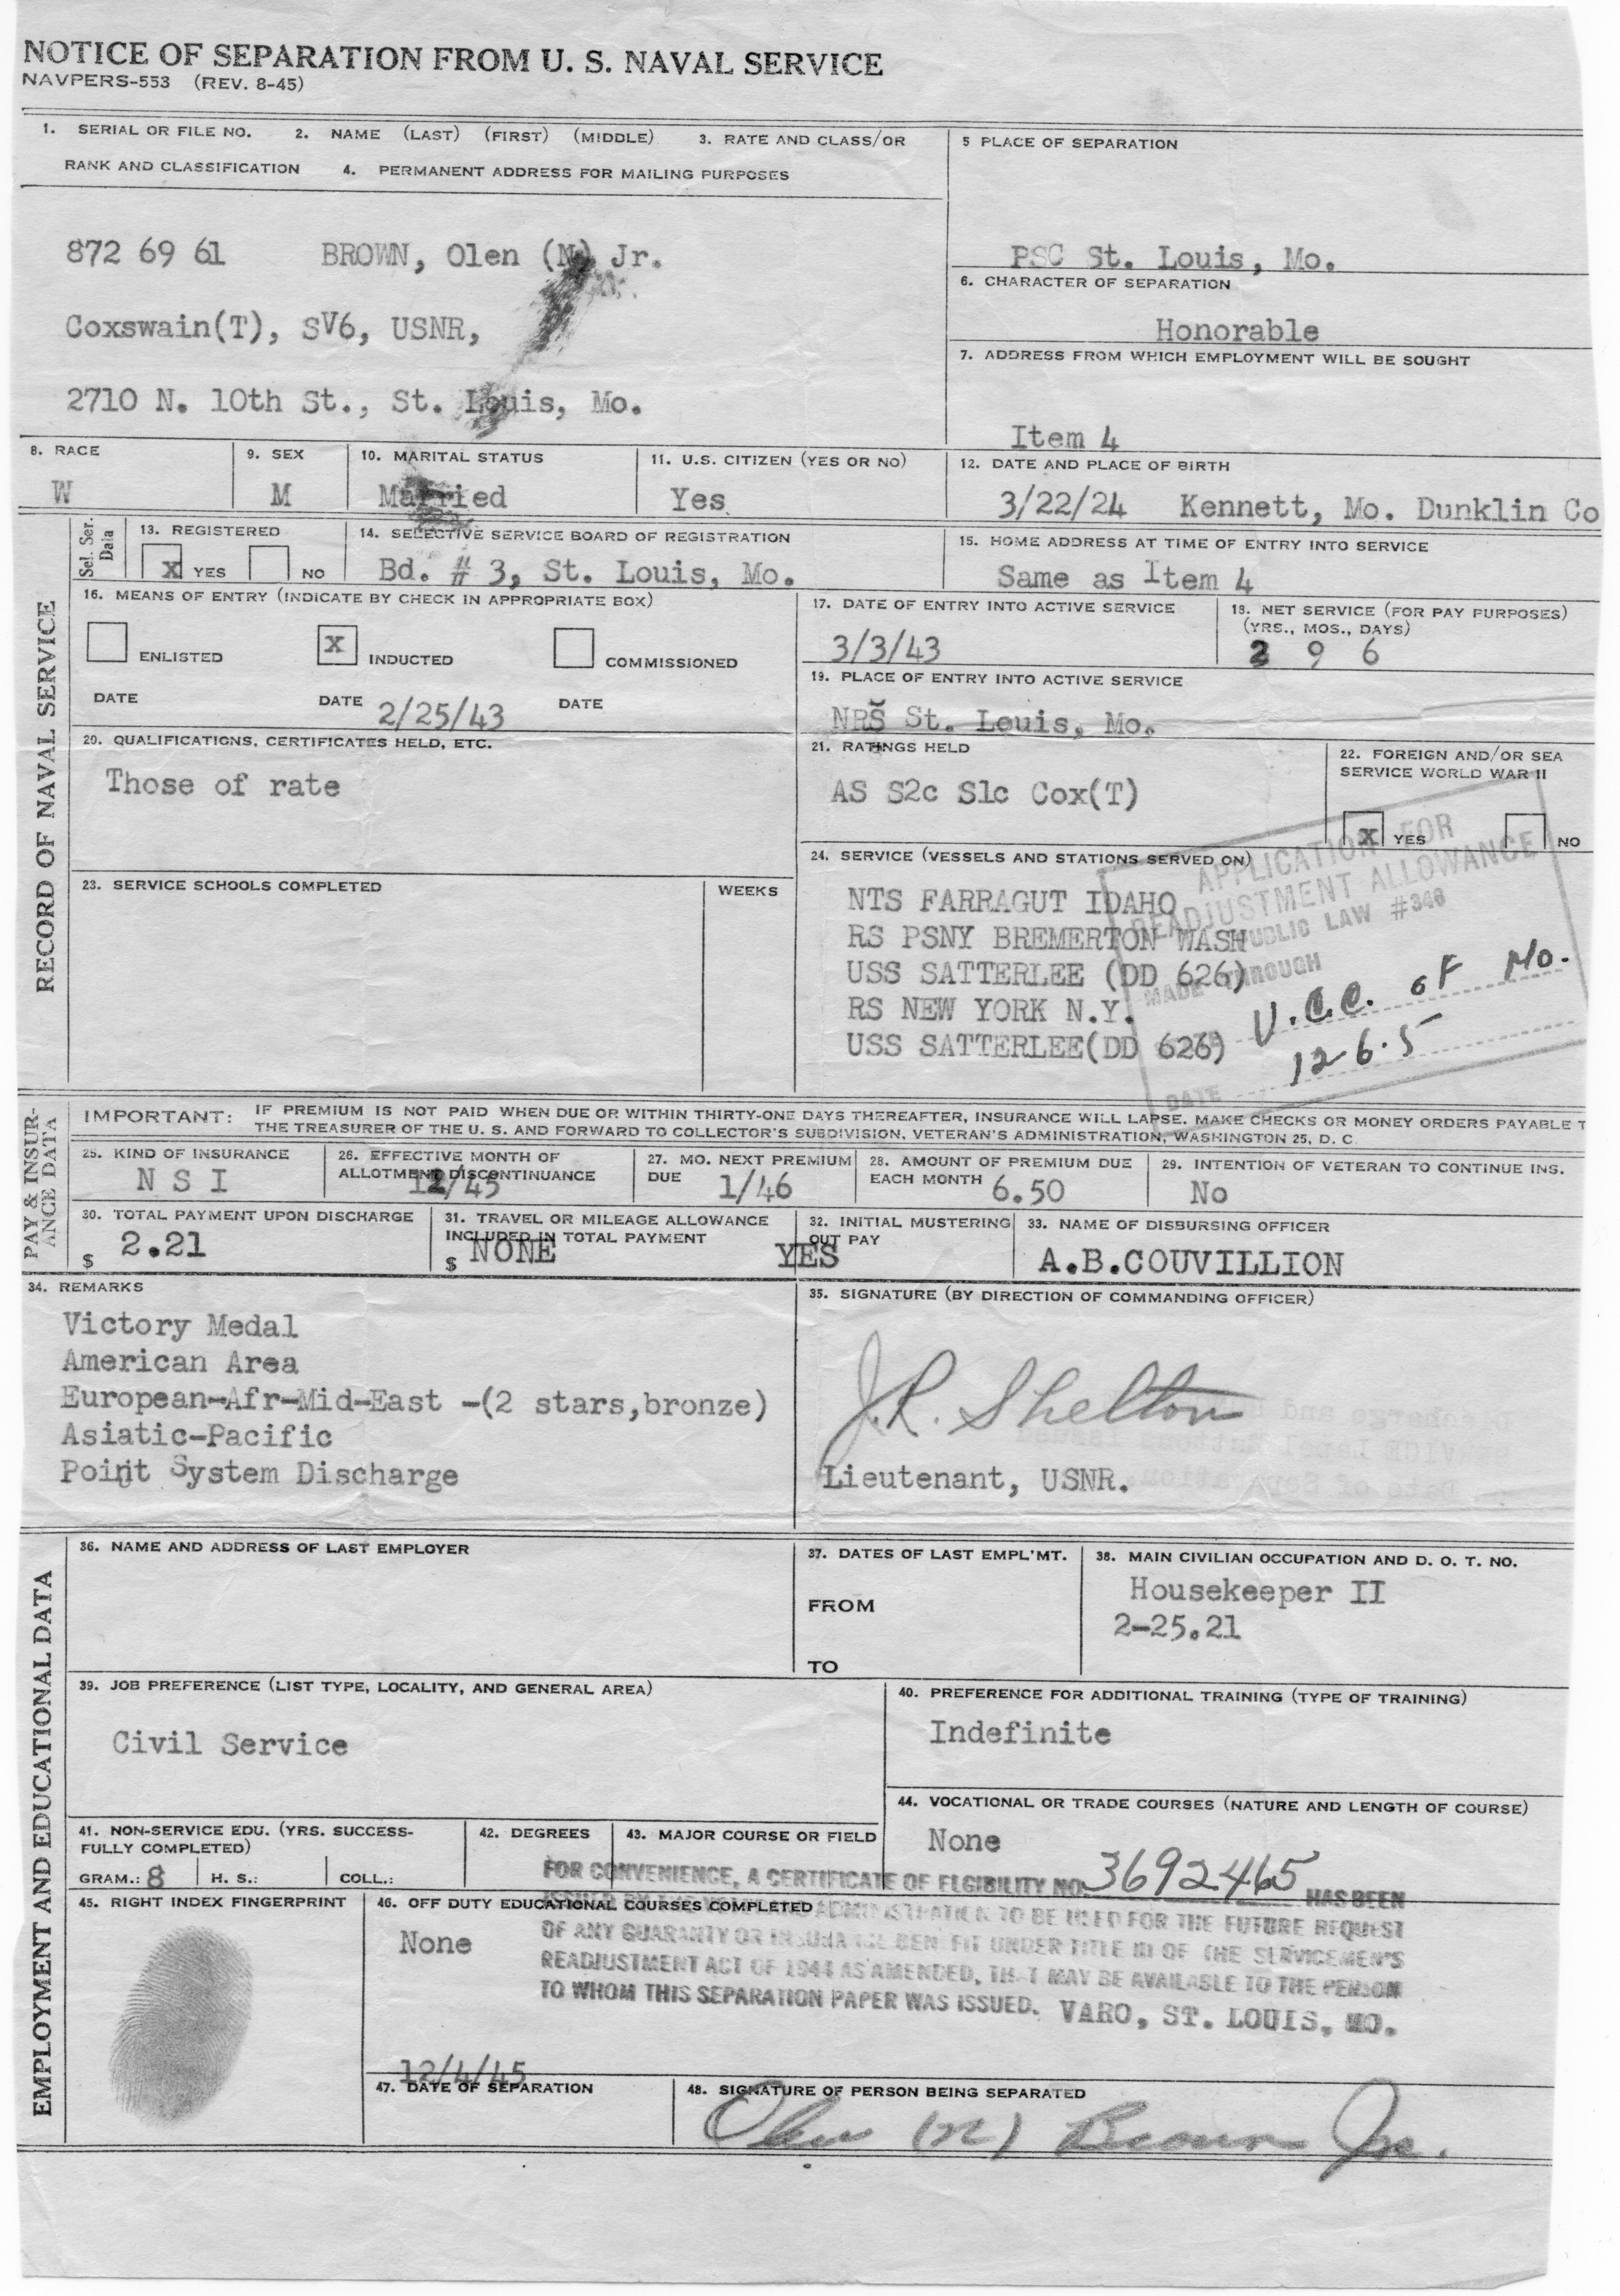 NOTICE OF SEPARATION FROM U. S. NAVAL SERVICE
NAVPERS-553 (REV. 8-45)
1. SERIAL OR FILE NO. 2. NAME (LAST) (FIRST) (MIDDLE) 3. RATE AND CLASS/OR
RANK AND CLASSIFICATION 4. PERMANENT ADDRESS FOR MAILING PURPOSES
872 69 61 BROWN, Olen (N) Jr.
Coxswain(T), SV6, USNR,
2710 N. 10th St., St. Louis, Mo.
5 PLACE OF SEPARATION
PSC St. Louis, Mo.
6. CHARACTER OF SEPARATION
Honorable
7. ADDRESS FROM WHICH EMPLOYMENT WILL BE SOUGHT
Item 4
8. RACE
W
9. SEX
M
10. MARITAL STATUS
Married
11. U.S. CITIZEN (YES OR NO)
Yes
12. DATE AND PLACE OF BIRTH
3/22/24 Kennett, Mo. Dunklin Co
RECORD OF NAVAL SERVICE
Sel. Ser.
Data
13. REGISTERED
X YES NO
14. SELECTIVE SERVICE BOARD OF REGISTRATION
Bd. # 3, St. Louis, Mo.
15. HOME ADDRESS AT TIME OF ENTRY INTO SERVICE
Same as Item 4
16. MEANS OF ENTRY (INDICATE BY CHECK IN APPROPRIATE BOX)
ENLISTED X INDUCTED COMMISSIONED
DATE DATE 2/25/43 DATE
17. DATE OF ENTRY INTO ACTIVE SERVICE
3/3/43
18. NET SERVICE (FOR PAY PURPOSES)
(YRS., MOS., DAYS)
2 9 6
19. PLACE OF ENTRY INTO ACTIVE SERVICE
NRS St. Louis, Mo.
20. QUALIFICATIONS, CERTIFICATES HELD, ETC.
Those of rate
21. RATINGS HELD
AS S2c S1c Cox(T)
22. FOREIGN AND/OR SEA
SERVICE WORLD WAR II
X YES NO
23. SERVICE SCHOOLS COMPLETED
WEEKS
24. SERVICE (VESSELS AND STATIONS SERVED ON)
NTS FARRAGUT IDAHO
RS PSNY BREMERTON WASH
USS SATTERLEE (DD 626)
RS NEW YORK N.Y.
USS SATTERLEE(DD 626)
APPLICATION FOR
READJUSTMENT ALLOWANCE
PUBLIC LAW #346
MADE THROUGH
U.C.C. of Mo.
12-6-5
DATE
PAY & INSUR-
ANCE DATA
IMPORTANT: IF PREMIUM IS NOT PAID WHEN DUE OR WITHIN THIRTY-ONE DAYS THEREAFTER, INSURANCE WILL LAPSE. MAKE CHECKS OR MONEY ORDERS PAYABLE T
THE TREASURER OF THE U. S. AND FORWARD TO COLLECTOR'S SUBDIVISION, VETERAN'S ADMINISTRATION, WASHINGTON 25, D. C.
25. KIND OF INSURANCE
N S I
26. EFFECTIVE MONTH OF
ALLOTMENT DISCONTINUANCE
12/45
27. MO. NEXT PREMIUM
DUE 1/46
28. AMOUNT OF PREMIUM DUE
EACH MONTH 6.50
29. INTENTION OF VETERAN TO CONTINUE INS.
No
30. TOTAL PAYMENT UPON DISCHARGE
$ 2.21
31. TRAVEL OR MILEAGE ALLOWANCE
INCLUDED IN TOTAL PAYMENT
$ NONE
32. INITIAL MUSTERING
OUT PAY
YES
33. NAME OF DISBURSING OFFICER
A.B.COUVILLION
34. REMARKS
Victory Medal
American Area
European-Afr-Mid-East -(2 stars,bronze)
Asiatic-Pacific
Point System Discharge
35. SIGNATURE (BY DIRECTION OF COMMANDING OFFICER)
J.R. Shelton
Lieutenant, USNR.
EMPLOYMENT AND EDUCATIONAL DATA
36. NAME AND ADDRESS OF LAST EMPLOYER
37. DATES OF LAST EMPL'MT.
FROM
TO
38. MAIN CIVILIAN OCCUPATION AND D. O. T. NO.
Housekeeper II
2-25.21
39. JOB PREFERENCE (LIST TYPE, LOCALITY, AND GENERAL AREA)
Civil Service
40. PREFERENCE FOR ADDITIONAL TRAINING (TYPE OF TRAINING)
Indefinite
41. NON-SERVICE EDU. (YRS. SUCCESS-
FULLY COMPLETED)
GRAM.: 8 H. S.: COLL.:
42. DEGREES
43. MAJOR COURSE OR FIELD
44. VOCATIONAL OR TRADE COURSES (NATURE AND LENGTH OF COURSE)
None
FOR CONVENIENCE, A CERTIFICATE OF ELGIBILITY NO. 3692465 HAS BEEN
ISSUED BY THE ADMINISTRATION TO BE USED FOR THE FUTURE REQUEST
OF ANY GUARANTY OR INSURANCE BENEFIT UNDER TITLE III OF THE SERVICEMEN'S
READJUSTMENT ACT OF 1944 AS AMENDED, THAT MAY BE AVAILABLE TO THE PERSON
TO WHOM THIS SEPARATION PAPER WAS ISSUED. VARO, ST. LOUIS, MO.
45. RIGHT INDEX FINGERPRINT
46. OFF DUTY EDUCATIONAL COURSES COMPLETED
None
12/4/45
47. DATE OF SEPARATION
48. SIGNATURE OF PERSON BEING SEPARATED
Olen (n) Brown Jr.